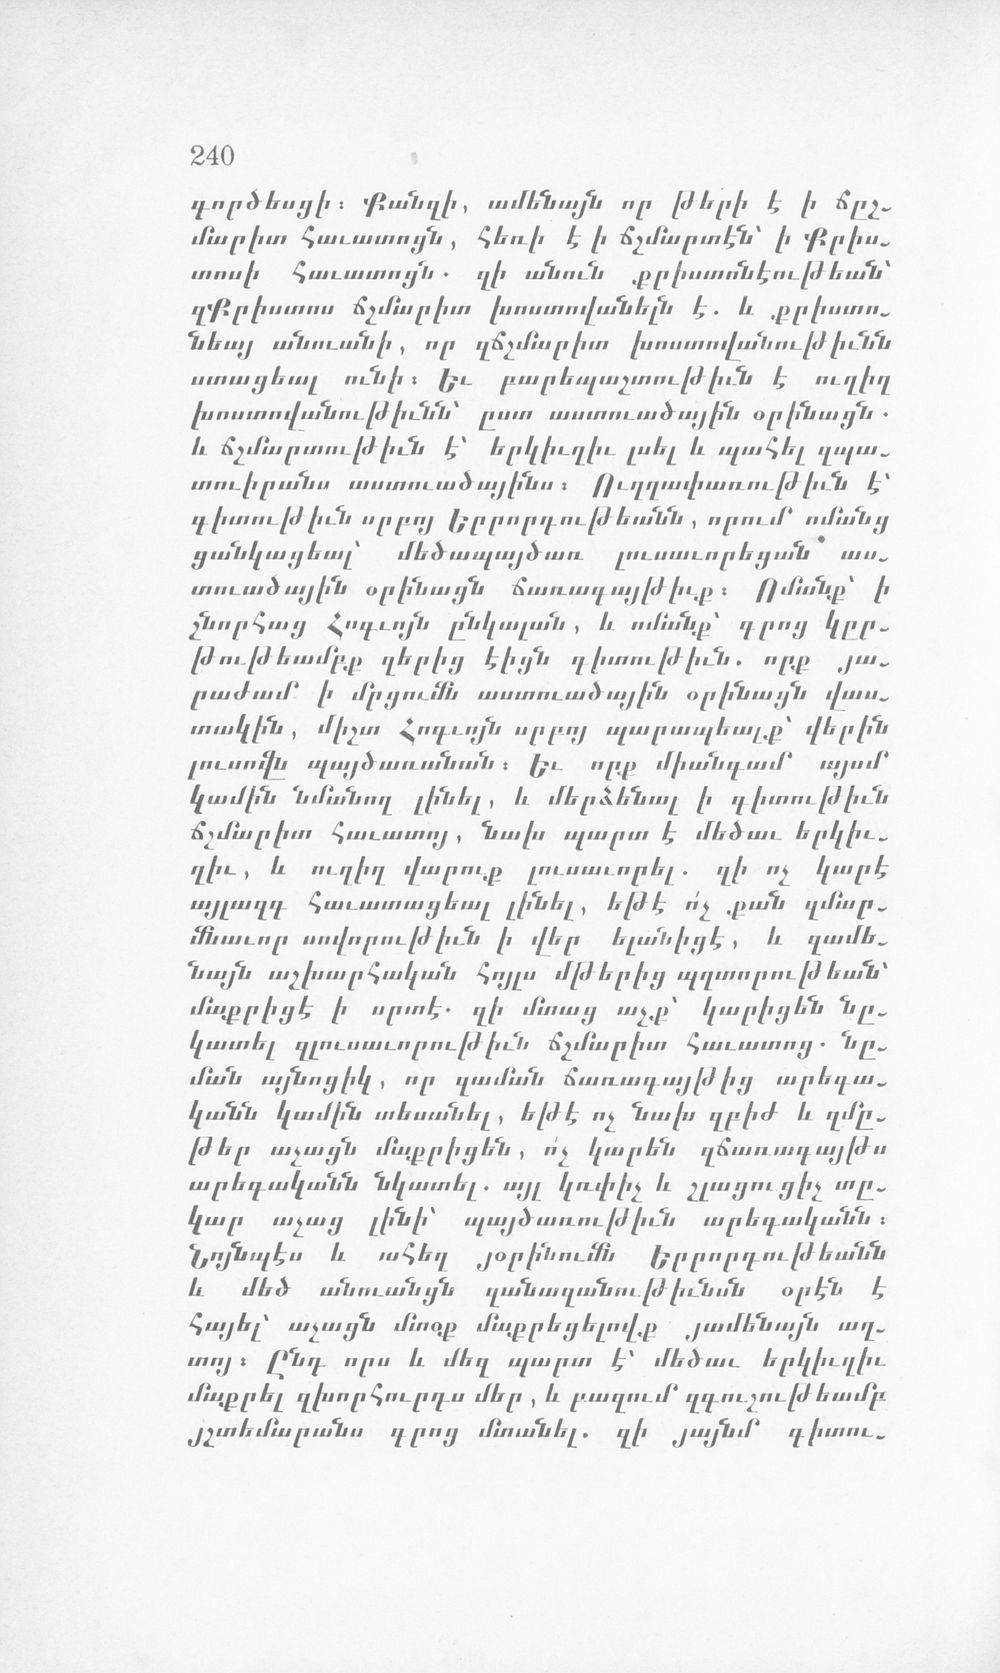 240
գործեսցի։ Քանզի, ամենայն որ թերի է ի ճըշ֊
մարիտ հաւատոցն, հեռի է ի ճշմարտէն՝ ի Քրիս֊
տոսի հաւատոցն. զի անուն քրիստոնէութեան՝
զՔրիստոս ճշմարիտ խոստովանելն է. և քրիստո֊
նեայ անուանի, որ զճշմարիտ խոստովանութիւնն
ստացեալ ունի։ Եւ բարեպաշտութիւն է ուղիղ
խոստովանութիւնն՝ ըստ աստուածային օրինացն.
և ճշմարտութիւն է՝ երկիւղիւ լսել և պահել զպա֊
տուիրանս աստուածայինս։ Ուղղափառութիւն է՝
գիտութիւն սրբոյ Երրորդութեանն, որում ոմանց
ցանկացեալ՝ մեծապայծառ լուսաւորեցան աս֊
տուածային օրինացն ճառագայթիւք։ Ոմանք՝ ի
շնորհաց Հոգւոյն ընկալան, և ոմանք՝ գրոց կըր֊
թութեամբք զերից էիցն գիտութիւն. որք յա֊
րաժամ ի մրցումն աստուածային օրինացն վաս֊
տակին, միշտ Հոգւոյն սրբոյ պարապեալք՝ վերին
լուսովն պայծառանան։ Եւ որք միանգամ այսմ
կամին նմանող լինել, և մերձենալ ի գիտութիւն
ճշմարիտ հաւատոյ, նախ պարտ է մեծաւ երկիւ֊
ղիւ, և ուղիղ վարուք լուսաւորել. զի ոչ կարէ
այլազգ հաւատացեալ լինել, եթէ ո՛չ քան զմար֊
մնաւոր սովորութիւն ի վեր ելանիցէ, և զամե֊
նայն աշխարհական հոյլս մթերից պղտորութեան՝
մաքրիցէ ի սրտէ. զի մտաց աչք՝ կարիցեն նը֊
կատել զլուսաւորութիւն ճշմարիտ հաւատոց. նը֊
ման այնոցիկ, որ զաման ճառագայթից արեգա֊
կանն կամին տեսանել, եթէ ոչ նախ զբիժ և զմը֊
թեր աչացն մաքրիցեն, ո՛չ կարեն զճառագայթս
արեգականն նկատել. այլ կուփիչ և շլացուցիչ տը֊
կար աչաց լինի՝ պայծառութիւն արեգականն։
Նոյնպէս և ահեղ յօրինումն Երրորդութեանն
և մեծ անուանցն զանազանութիւնսն օրէն է
հայել՝ աչացն մտօք մաքրեցելովք յամենայն աղ֊
տոյ։ Ընդ որս և մեզ պարտ է՝ մեծաւ երկիւղիւ
մաքրել զխորհուրդս մեր, և բազում զգուշութեամբ
յշտեմարանս գրոց մտանել. զի յայնմ գիտու֊